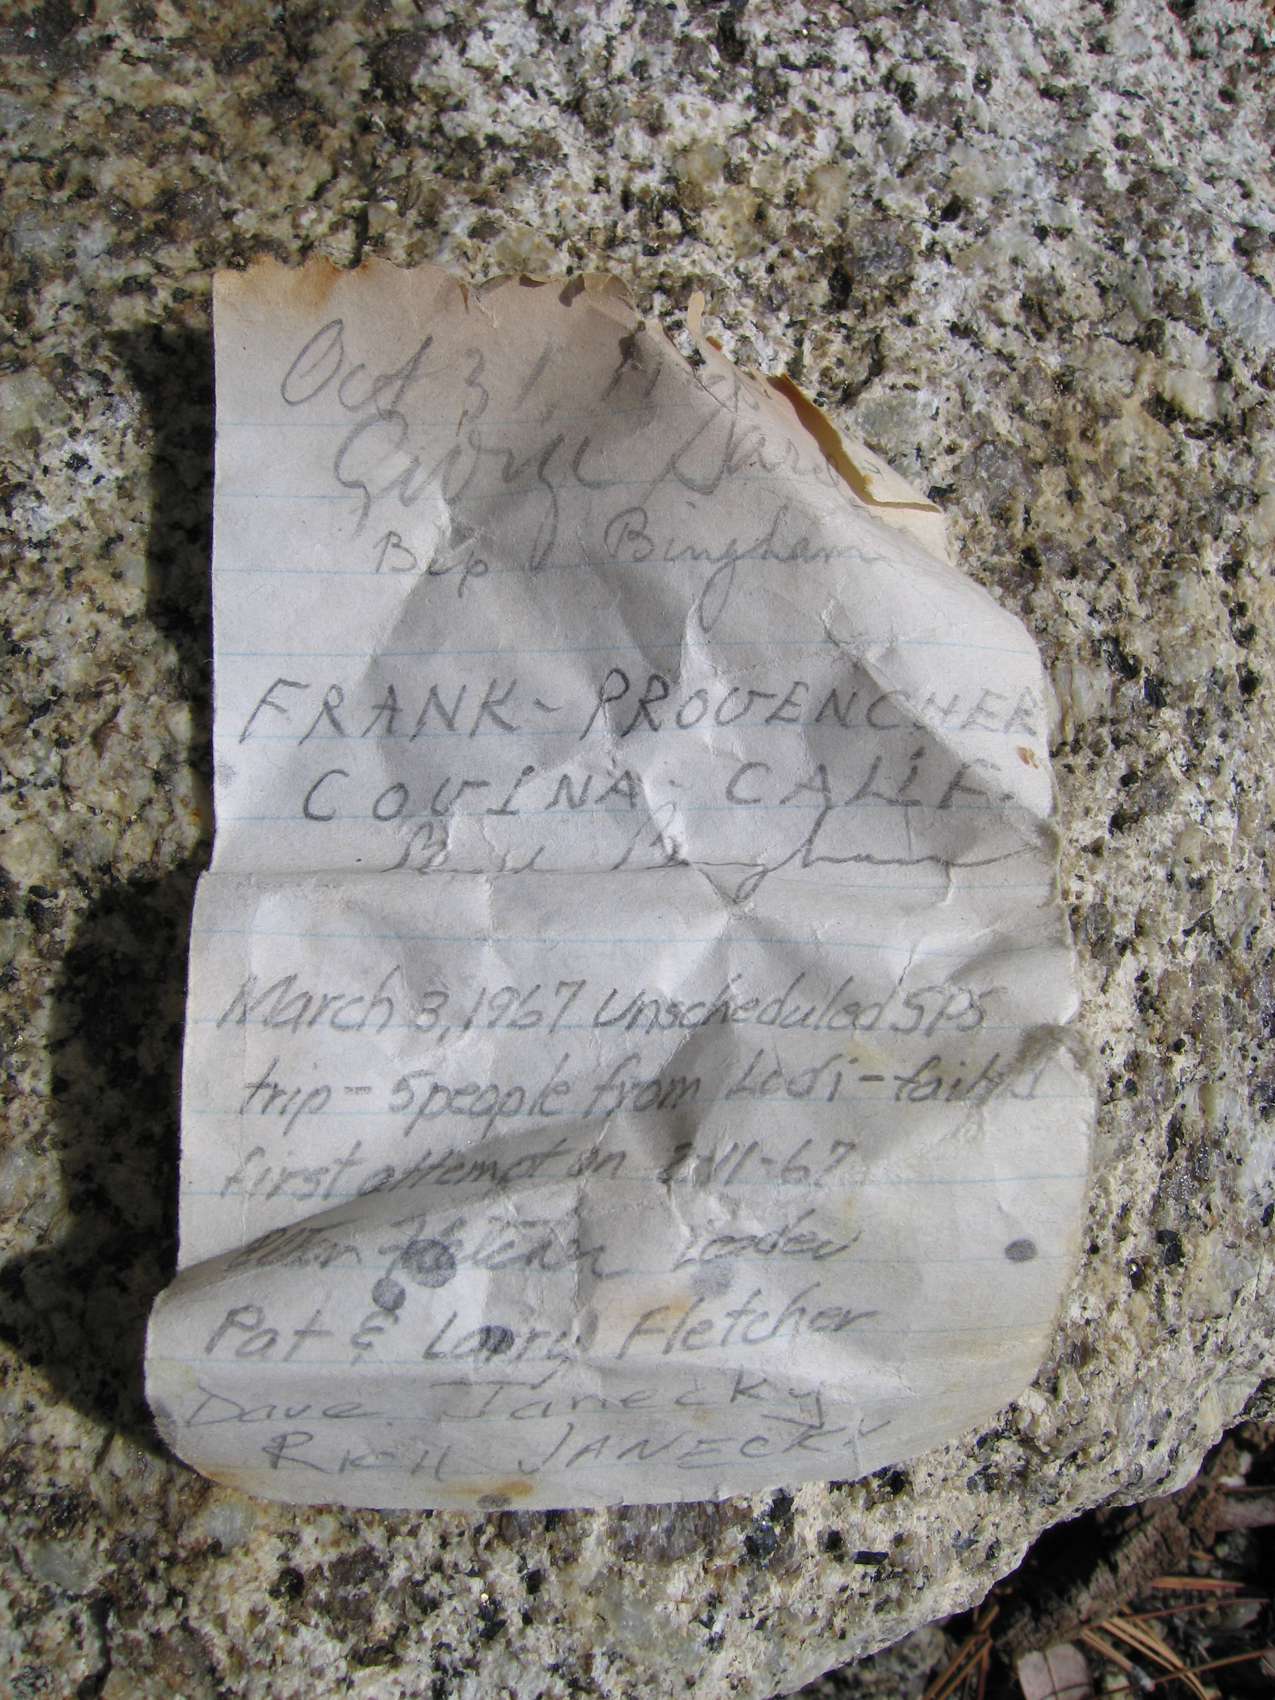 Oct 31, 19
George
Bep Bingham
FRANK - PROVENCHER
COVINA - CALIF.
Bingham
March 3, 1967 Unscheduled SPS
trip - 5 people from Lodi - failed
first attempt on 2-11-67
Fletcher Leader
Pat & Larry Fletcher
Dave Janecky
RICH JANECKY